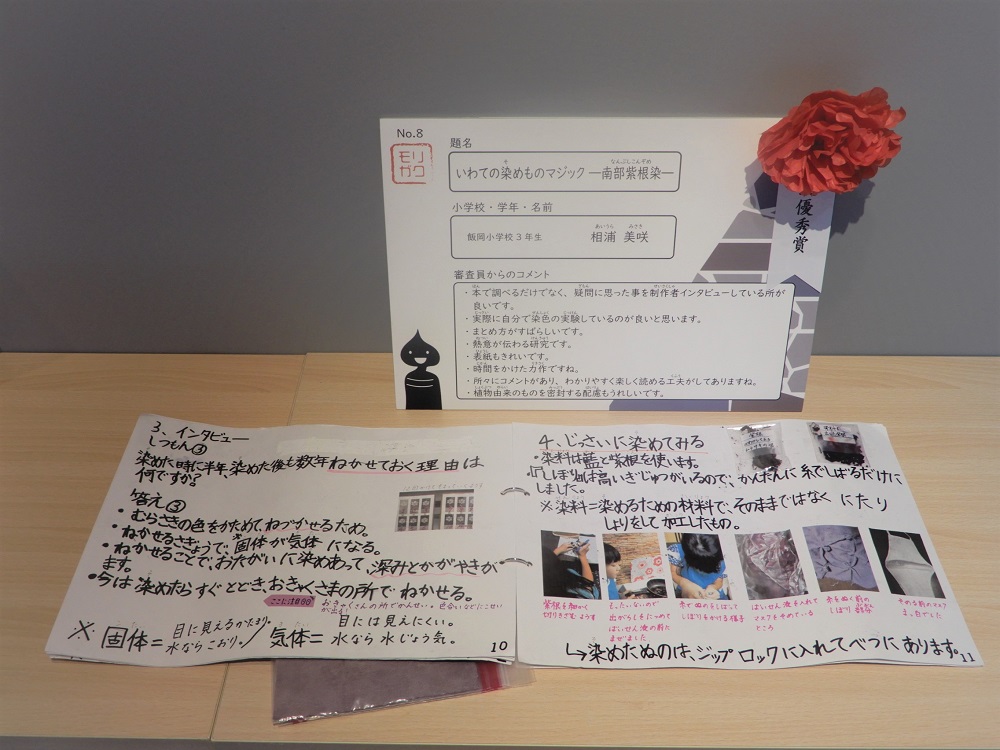 No.8
モリガク
題名
いわての染めものマジック ―南部紫根染―
小学校・学年・名前
飯岡小学校3年生 相浦 美咲
優秀賞
審査員からのコメント
・本で調べるだけでなく、疑問に思った事を制作者インタビューしている所が
良いです。
・実際に自分で染色の実験しているのが良いと思います。
・まとめ方がすばらしいです。
・熱意が伝わる研究です。
・表紙もきれいです。
・時間をかけた力作ですね。
・所々にコメントがあり、わかりやすく楽しく読める工夫がしてありますね。
・植物由来のものを密封する配慮もうれしいです。
3、インタビュー
しつもん③
染めた時に半年、染めた後も数年ねかせておく理由は
何ですか?
答え③
・むらさきの色をかためて、ねづかせるため。
・ねかせるさぎょうで、固体が気体になる。
・ねかせることで、おたがいに染めあって、深みとかがやきが
ます。
・今は染めたらすぐとどき、おきゃくさまの所でねかせる。
※固体=目に見えるかたまり。
水ならこおり。
気体=目には見えにくい。
水なら水じょう気。
10
4、じっさいに染めてみる
・染料は藍と紫根を使います。
しぼりは高いぎじゅつがいるので、かんたんに糸でしばるだけに
しました。
※染料=染めるための材料で、そのままではなくにたり
しょりをして加工したもの。
紫根を細かく
切りきざむようす
もったいないので
ばいせん液の前に
まぜました
糸で布をしばって
しぼりをかける様子
ばいせん液を入れて
マスクをそめている
ところ
糸をぬく前の
しぼり
そめる前のマス
ク。白でした
→染めたぬのは、ジップロックに入れてべつにあります。
11